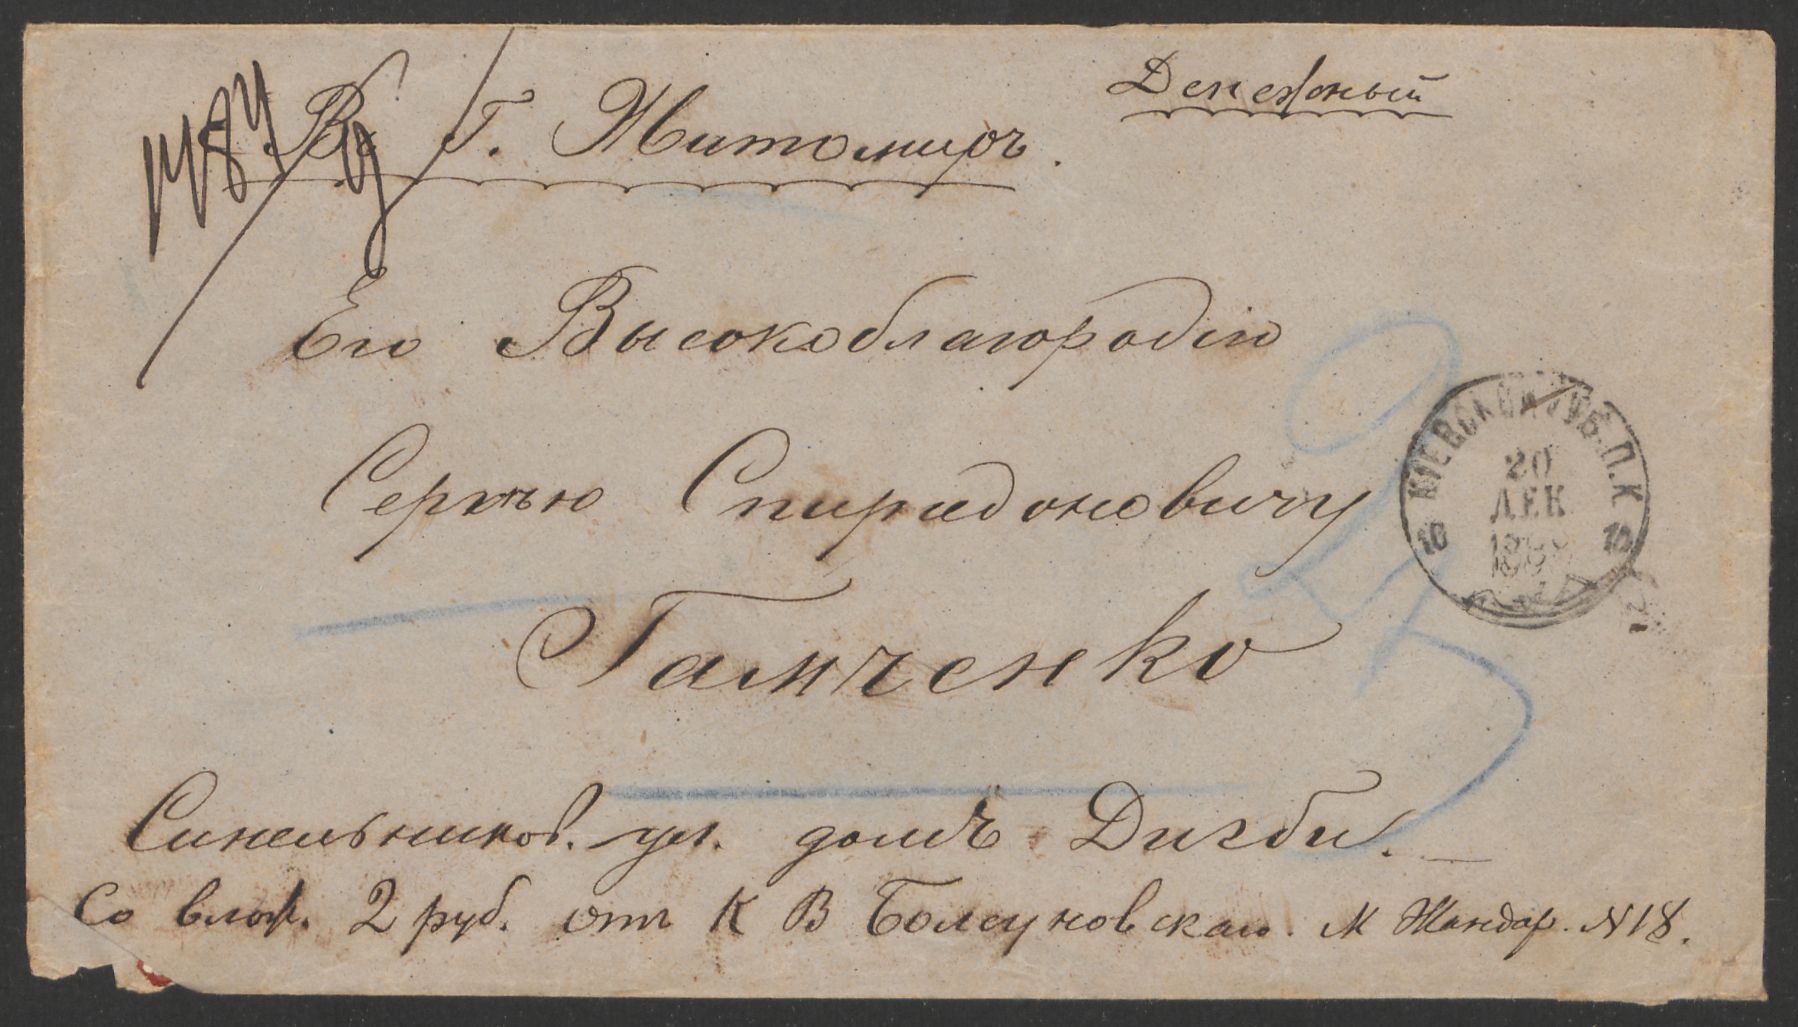 Денежный
Въ Г. Житомиръ.
Его Высокоблагородію
Сергѣю Спиридоновичу
Гамченко
КІЕВСКОЙ ГУБ. П. К.
20
ДЕК
10 10
Синельников. ул. домъ Дигби.
Со влож. 2 руб. отъ К В Болсуновскаго. М Жандар. N 18.